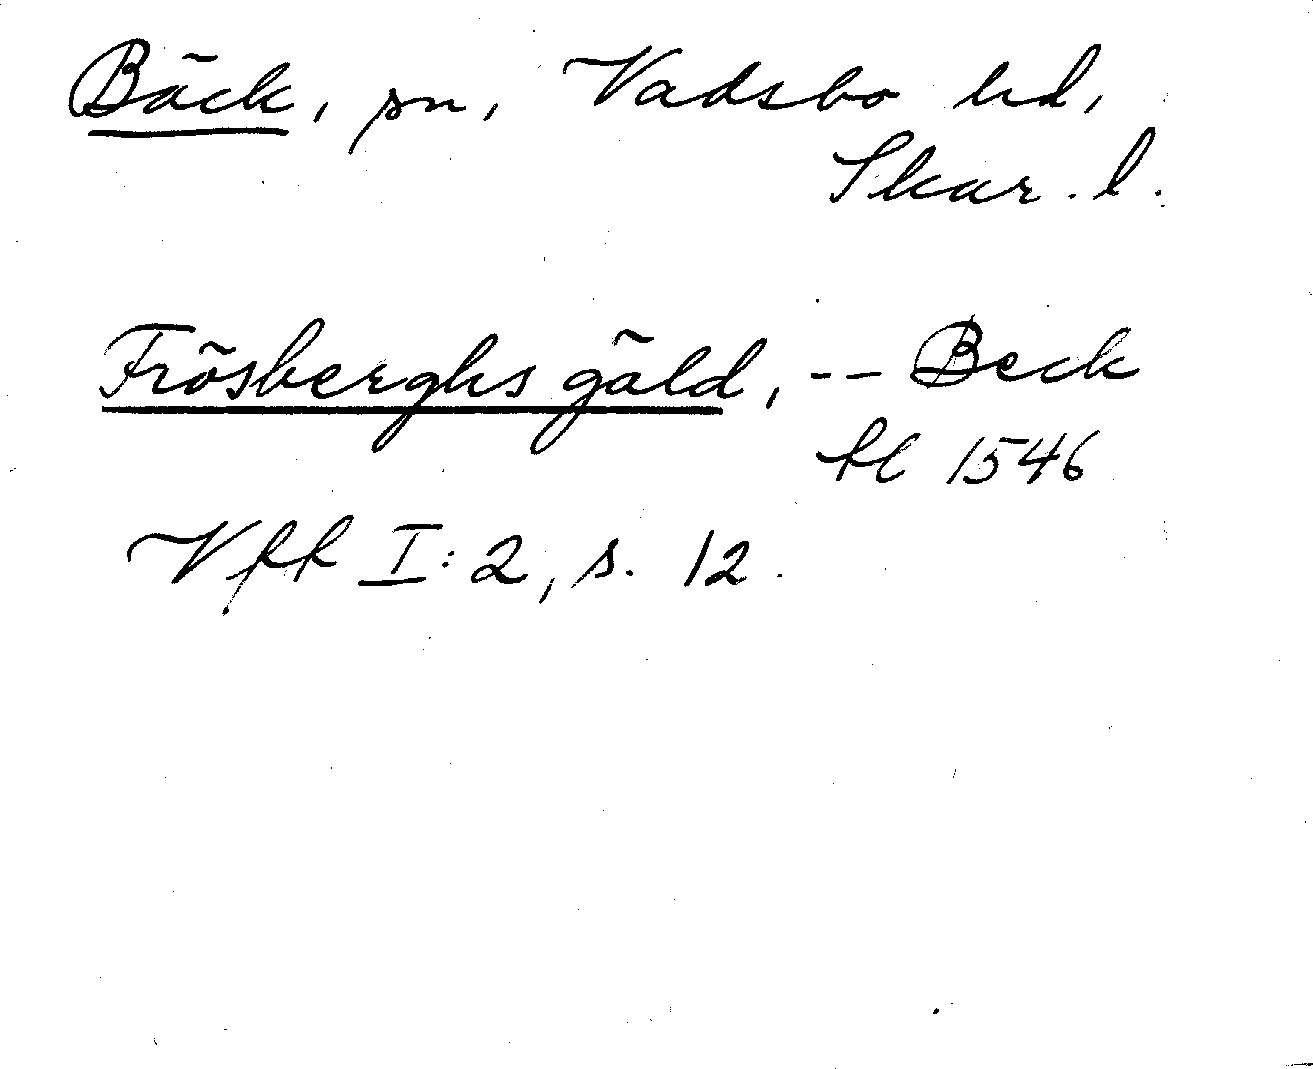 Bäck, sn, Vadsbo hd,
Skar. l.
Frösberghs gäld, -- Beck
kl 1546
Vfk I:2, s. 12.